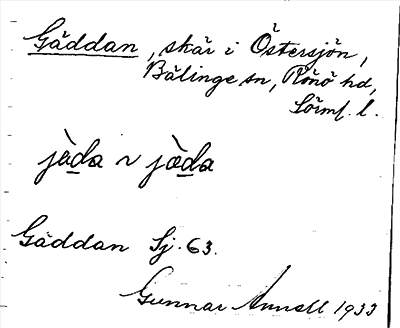 Gäddan, skär i Östersjön,
Bälinge sn, Rönö hd,
Sörml. l.
jàda ~ jæ̀da
Gäddan Sj. 63.
Gunnar Annell 1933